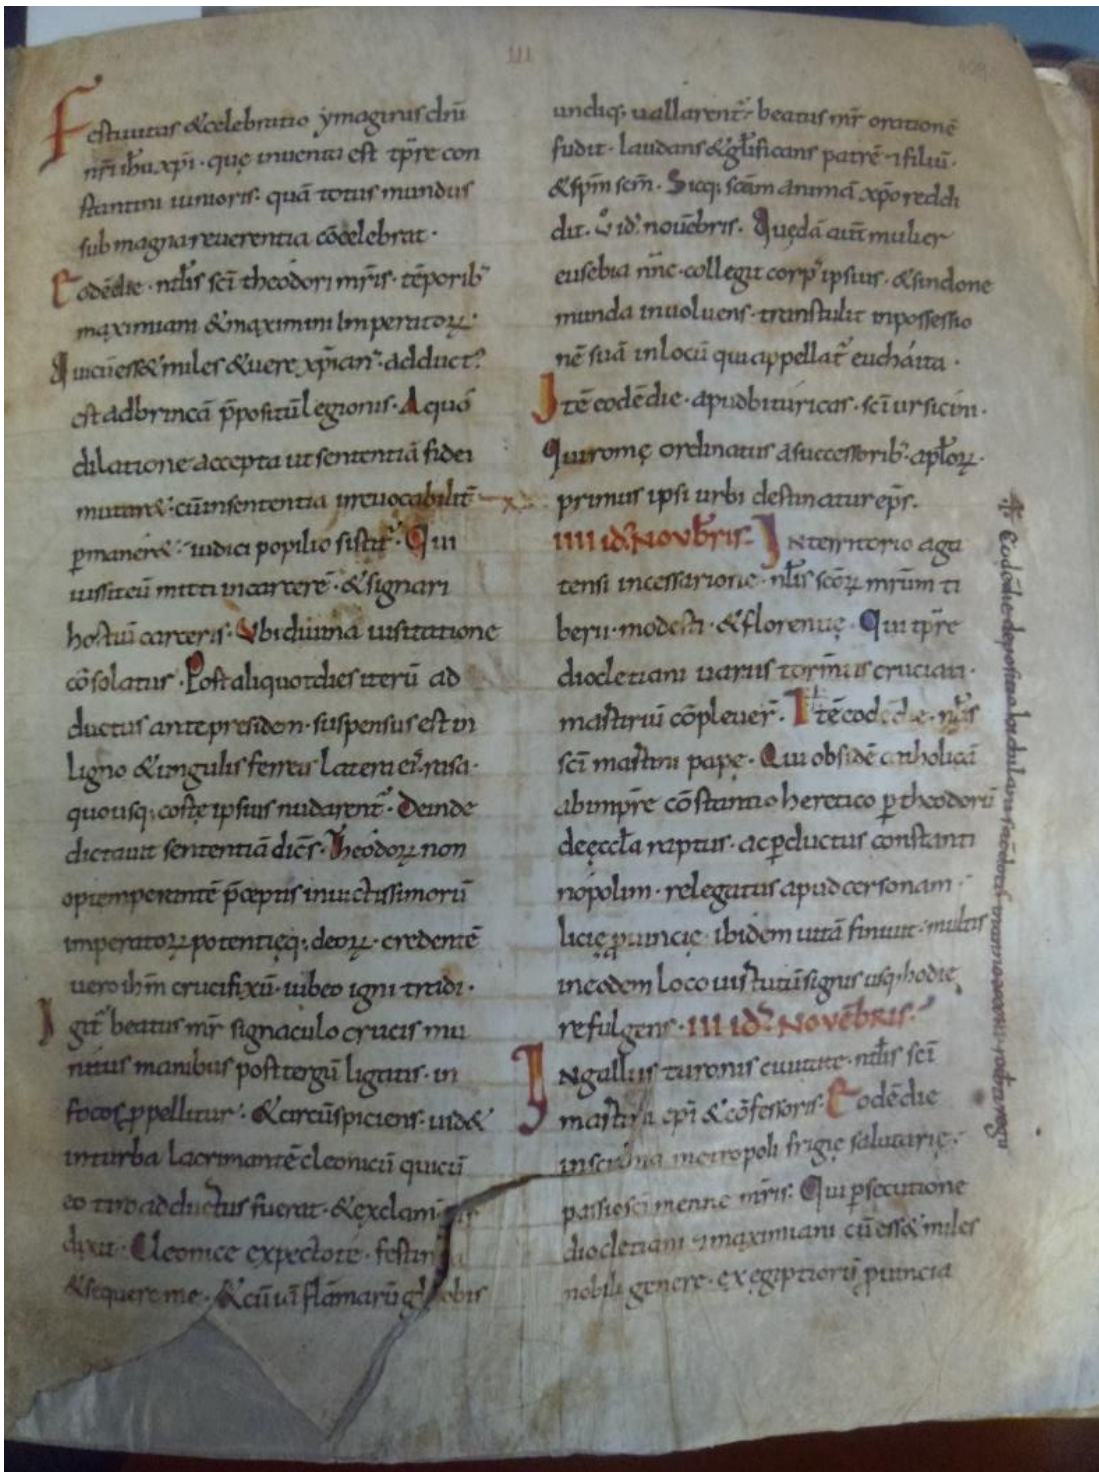 III
109
Festiuitas & celebratio ymaginis dn̄i
nr̄i ih̄u xp̄i · quę inuenta est tp̄re con
stantini iunioris· quā totus mundus
sub magna reuerentia cōcelebrat·
Eodēdie · nt̄lis sc̄i theodori mr̄is · tēporib;
maximiani & maximini Imperatoꝝ·
Qui cū ess& miles & uere xp̄ian᾿· adduct᾿
est ad brincā p̄positū legionis· A quo
dilatione accepta ut sententiā fidei
mutar&· cū in sententia irreuocabilit̄
ꝑmaner&· iudici popilio sistit᾿· Qui
iussit eū mitti in carcerē· & signari
hostiū carceris· Vbi diuina uisitatione
cōsolatus · Post aliquot dies iterū ad
ductus ante presidem · suspensus est in
ligno & ungulis ferreis latera ei᾿· rasa·
quousq; costę ipsius nudarent᾿· Deinde
dictauit sententiā dicēs· Theodoꝝ non
optemperantē p̄ceptis inuictissimorū
imperatoꝝ potentięq; deoꝝ· credentē
uero ih̄m crucifixū· iubeo igni tradi·
Igit᾿ beatus mr̄ signaculo crucis mu
nitus manibus post tergū ligatis· in
focos ꝓpellitur· & circūspiciens· uid&
in turba lacrimantē cleonicū qui cū
eo tiro adductus fuerat· & exclam
dixit· Cleonice expecto te· festin
& sequere me· & cū uı̄ flāmarū gl obis
undiq; uallarent᾿· beatus mr̄ orationē
fudit· laudans & gl̄ificans patrē ⁊ filiū·
& sp̄m sc̄m· Sicq; sc̄am animā xp̄o reddi
dit· v id᾿ nouēbris· Quędā aut̄ mulier
eusebia nn̄e· collegit corp᾿ ipsius· & sindone
munda inuoluens· transtulit in possessio
nē suā in locū qui appellat᾿ euchaita·
Itē eodēdie· apud bituricas· sc̄i ursicini·
Qui romę ordinatus a successorib; apl̄oꝝ·
primus ipsi urbi destinatur ep̄s·
IIII id᾿ Nouēbris· In territorio aga
tensi in cessarione· nt̄lis sc̄oꝝ mr̄um ti
berii· modesti· & florentię· Qui tp̄re
diocletiani uariis tormtis cruciati·
martiriū cōpleuer̄· Itē eodēdie· nt̄lis
sc̄i martini papę· Qui ob fidē catholicā
ab imp̄re cōstantio heretico ꝑ theodorū
de ęccl̄a raptus· ac ꝑductus constanti
nopolim· relegatus apud cersonam·
licię ꝓuincię· ibidem uitā finiuit· multis
in eodem loco uirtutū signis usq; hodie
refulgens· III id᾿ Nouēbris·
In gallus turonis ciuitate· nt̄lis sc̄i
martini ep̄i & cōfessoris· Eodēdie
in scithia metropoli frigię salutarię·
passio sc̄i menne mr̄is· Qui ꝑsecutione
diocletiani ⁊ maximiani cū ess& miles
nobili genere· ex egiptiorū ꝓuincia
Eodēdie depositio